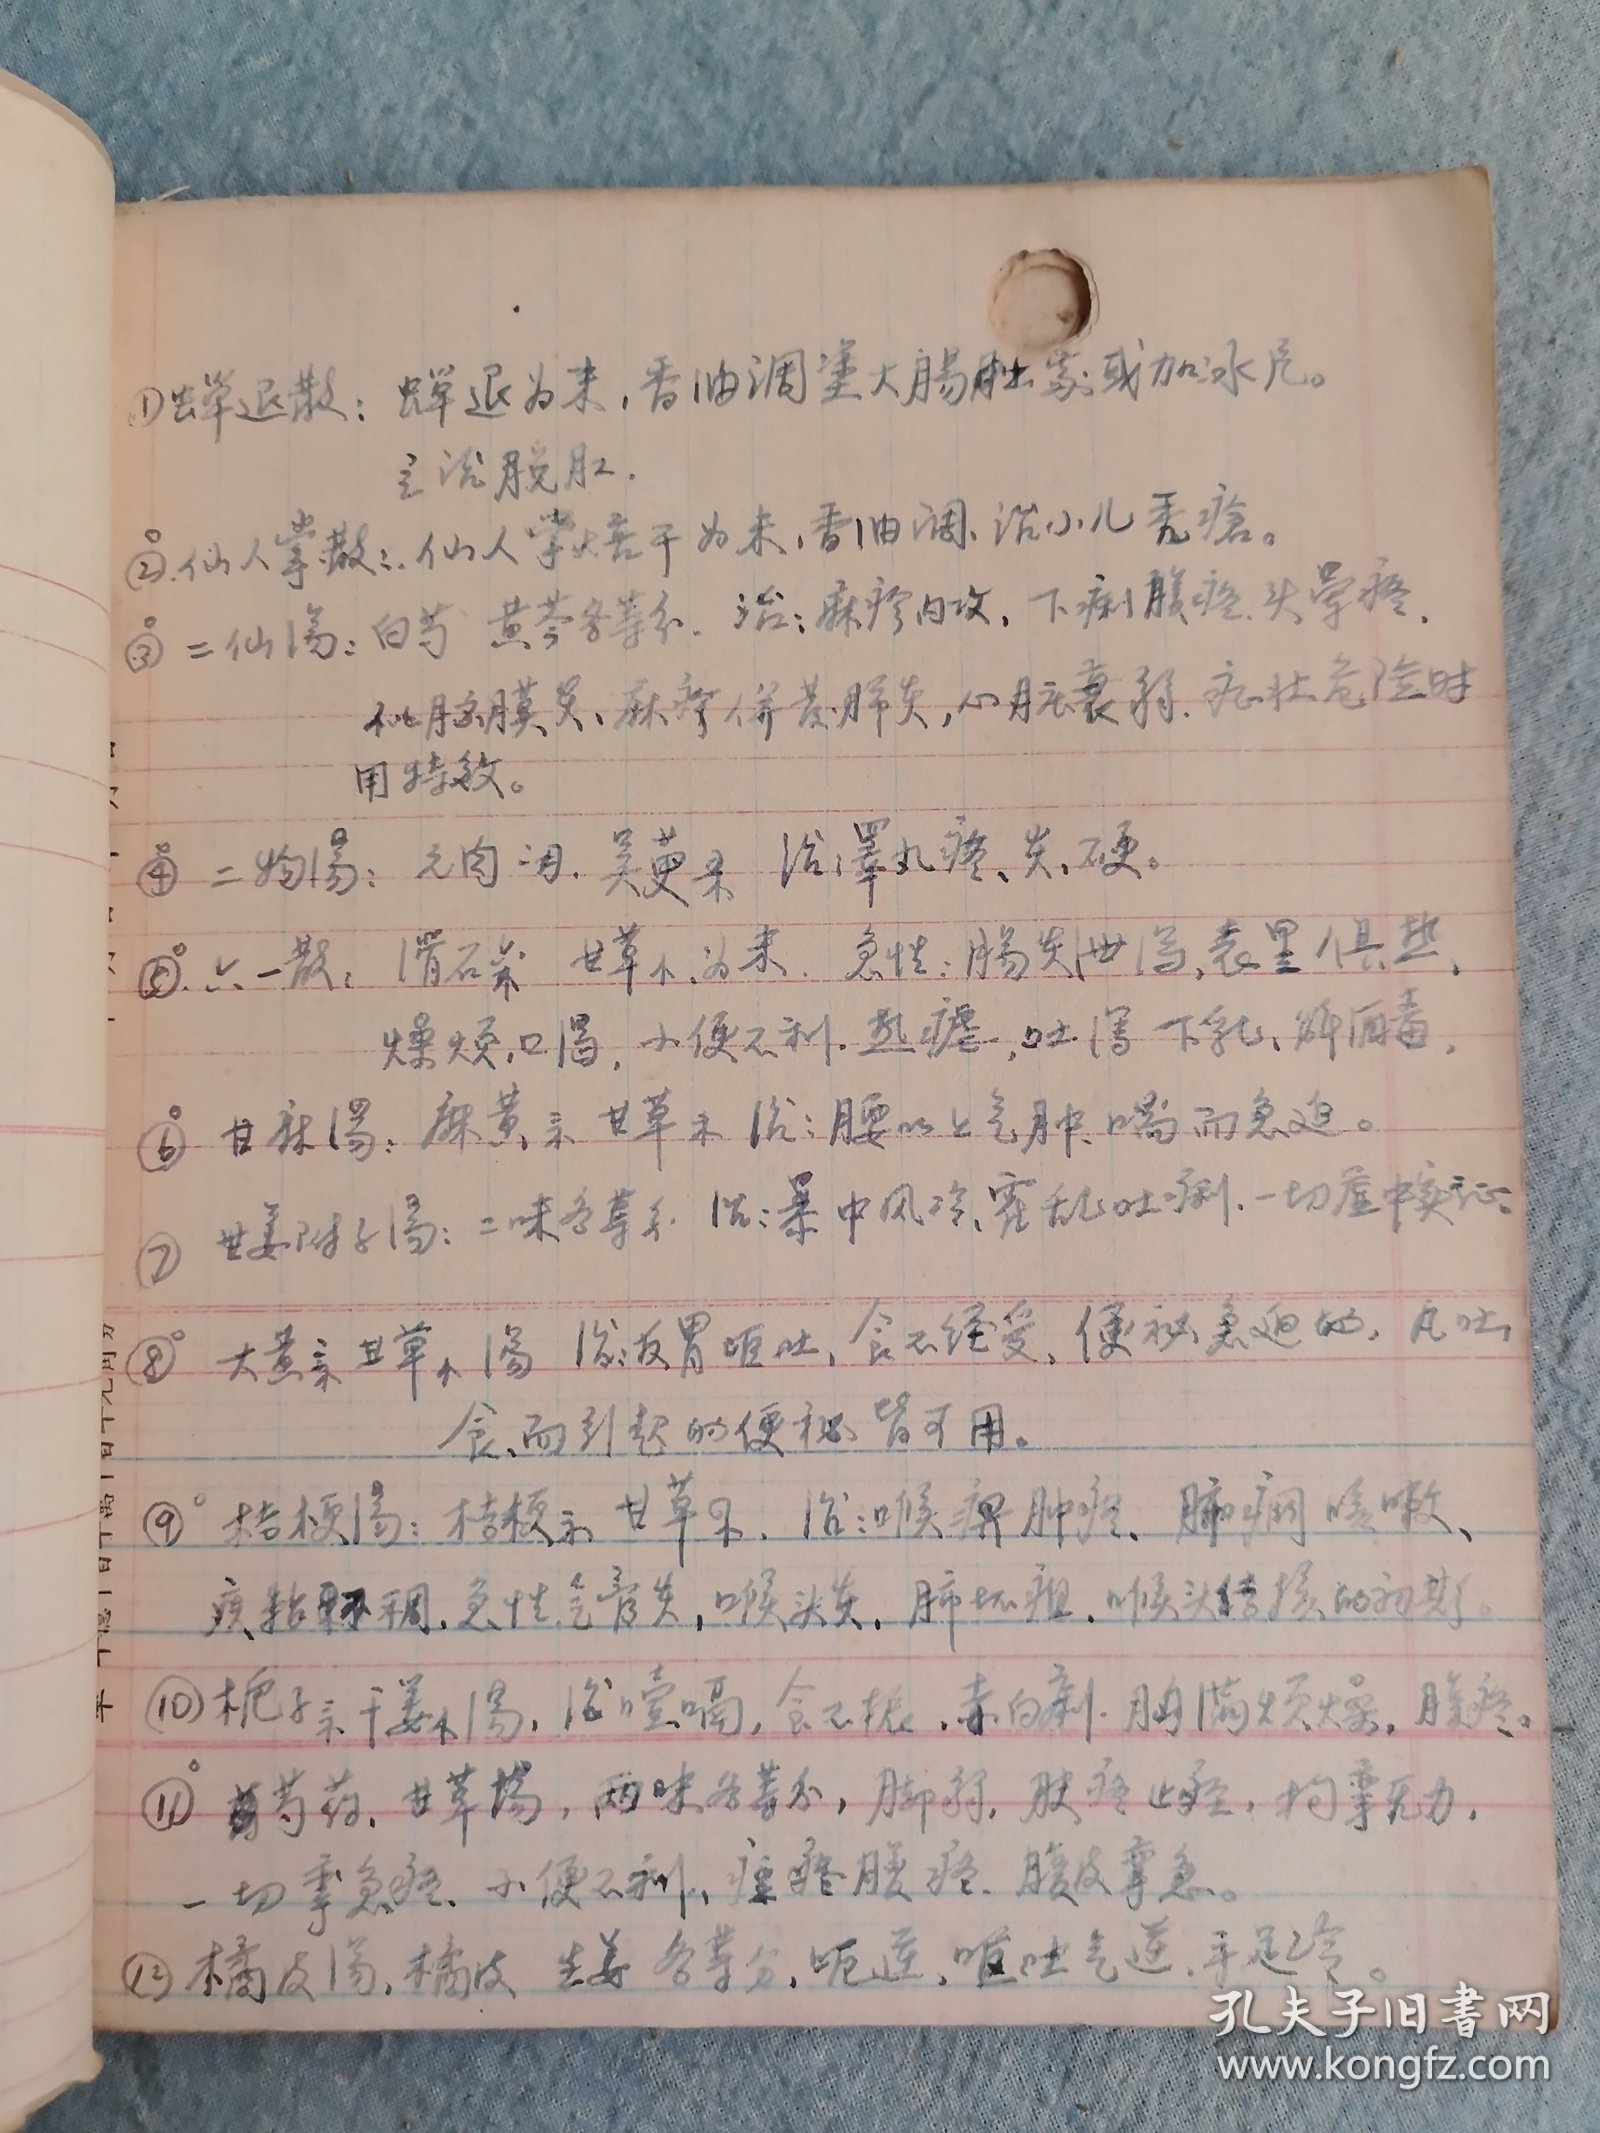 ①蝉退散：蝉退为末，香油调塗大肠肚 或加冰片。
主治脱肛.
②.仙人掌散：.仙人掌焙干为末，香油调、治小儿秃疮。
③二仙汤：白芍 黄芩各等分. 治：麻疹内攻，下痢腹疼.头晕疼.
似脑膜炎、麻疹併发肺炎，心脏衰弱.症状危险时
用特效。
④二物汤：元肉 吴萸 治睾丸疼、炎、硬。
⑤.六一散：滑石 甘草 为末. 急性：肠炎泄泻，表里俱热、
燥烦，口渴，小便不利.热瘧，吐泻 下乳、解酒毒.
⑥甘麻汤：麻黄 甘草 治：腰以上气肿、喘而急迫。
⑦甘姜附子汤：二味各等分 治：暴中风冷、霍乱吐痢.一切虚中寒证.
⑧大黄 甘草 汤 治：反胃呕吐，食不经受，便祕急迫的，凡吐
食、而引起的便祕皆可用。
⑨桔梗汤：桔梗 甘草 . 治：喉痹肿疼、肺痈咳嗽、
痰粘 稠.急性气管炎，喉头炎，肺坏疽.喉头结核的初期。
⑩栀子 干姜 汤，治噎嗝，食不振，赤白痢.胸满烦燥，腹疼。
⑪芍药、甘草汤，两味各等分，脚弱，肤疼 ，拘挛无力，
一切挛急疼、小便不利， 腹疼.腹皮挛急。
⑫橘皮汤，橘皮 生姜 各等分，呃逆，呕吐气逆.手足冷。
孔夫子旧书网
www.kongfz.com